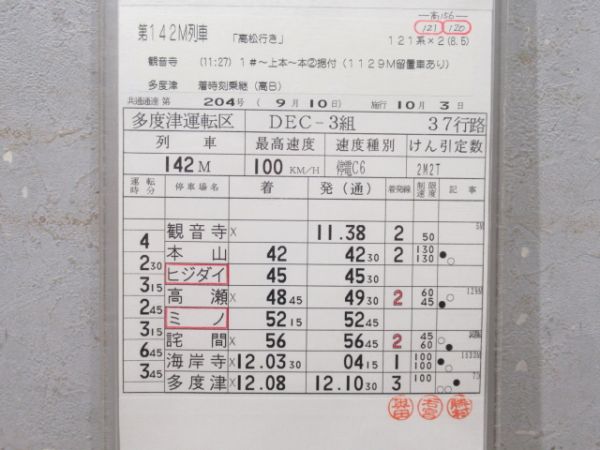 高156
121 120
第142M列車 「高松行き」 121系×2(8.5)
観音寺 (11:27) 1#～上本～本②据付 (1129M留置車あり)
多度津 着時刻乗継 (高日)
共通通達 第 204号 ( 9月10日) 施行 10月 3日
多度津運転区 DEC-3組 37行路
列車 最高速度 速度種別 けん引定数
142M 100KM/H 停電C6 2M2T
運転時分 停車場名 着 発(通) 着発線 制限速度 記事
観音寺× 11.38 2 50
4
本山 42 42 30 2 130 130 ●○
2 30
ヒジダイ 45 45 30
3 15
高瀬× 48 45 49 30 2 60 45 ●○
2 45
ミノ 52 15 52 45
3 15
詫間× 56 56 45 2 45 60 ○●
6 45
海岸寺× 12.03 30 04 15 1 100 100 ○●
3 45
多度津× 12.08 12.10 30 3 100 ○●